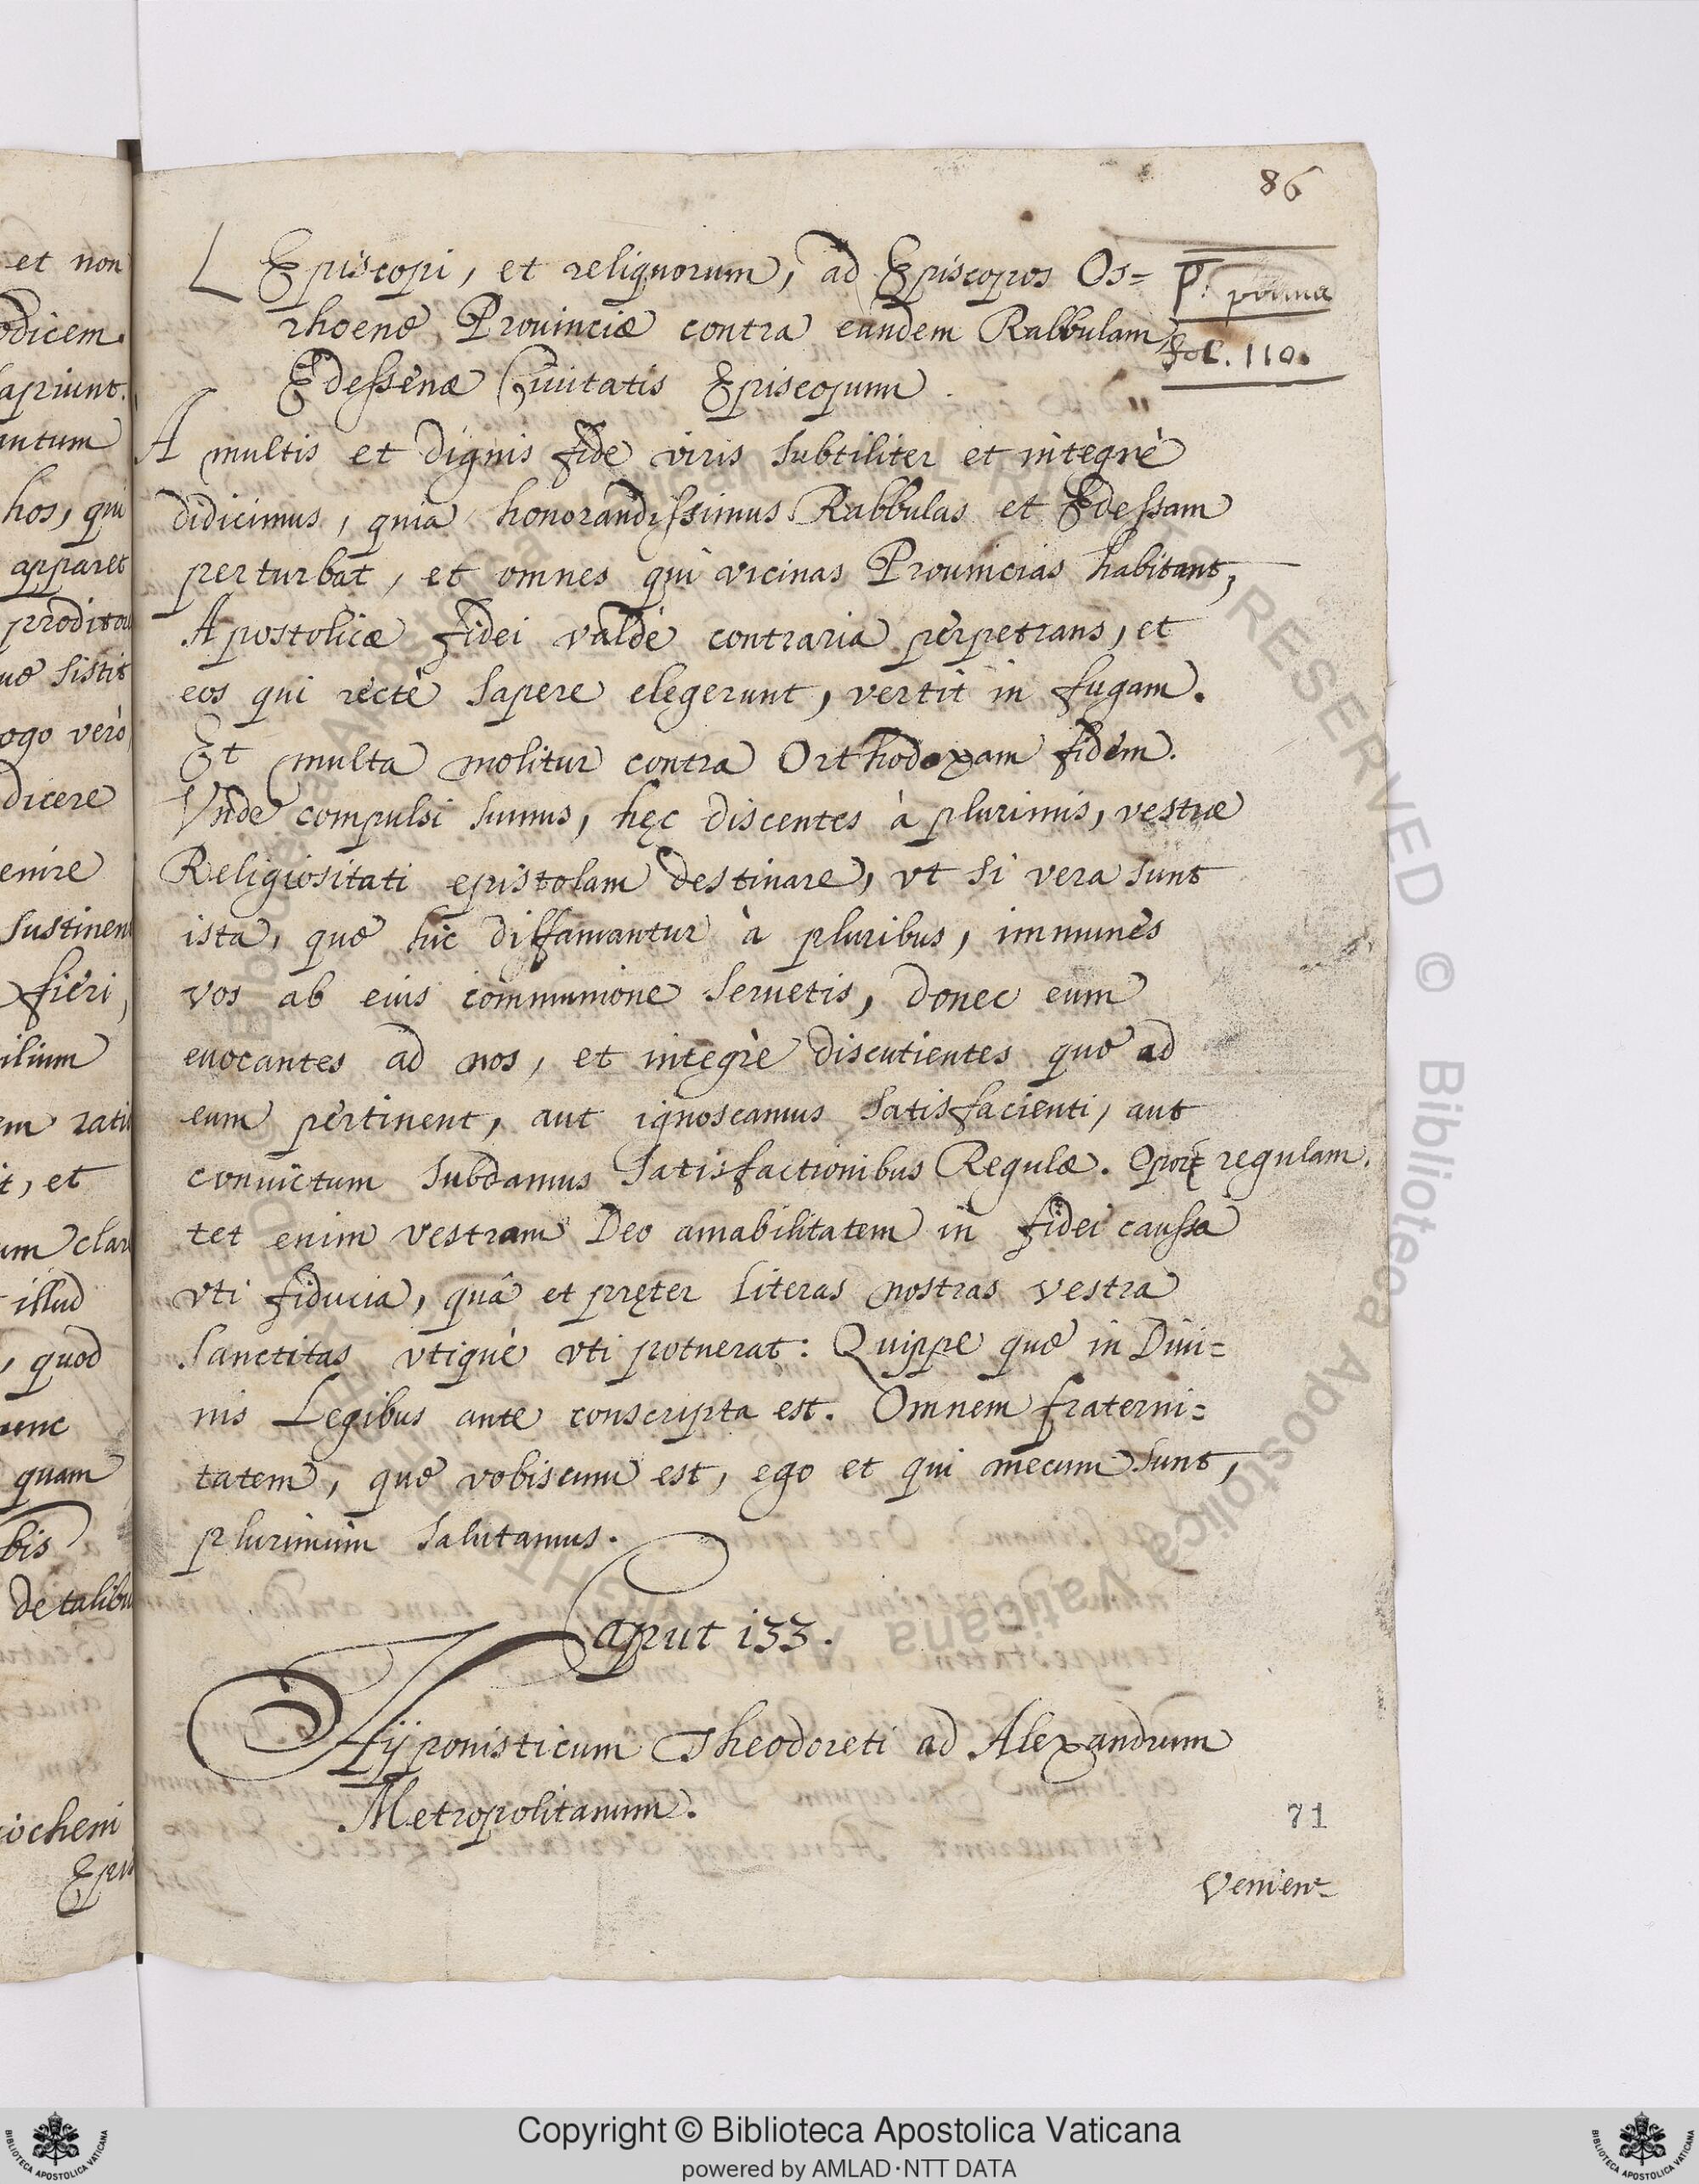 86
Episcopi, et reliquorum, ad Episcopos Os=
rhoenę Prouinciæ contra eundem Rabbulam
Edessenæ Ciuitatis Episcopum.
P. prima
fol. 110.
A multis et dignis fide viris subtiliter et integrè
didicimus, quia honorandissimus Rabbulas et Edessam
perturbat, et omnes qui vicinas Prouincias habitant,
Apostolicæ fidei valdè contraria perpetrans, et
eos qui rectè sapere elegerunt, vertit in fugam.
Et multa molitur contra Orthodoxam fidem.
Vnde compulsi sumus, hęc discentes à plurimis, vestræ
Religiositati epistolam destinare, vt si vera sunt
ista, quę hîc diffamantur à pluribus, immunes
vos ab eius communione seruetis, donec eum
euocantes ad nos, et integrè discutientes quę ad
eum pertinent, aut ignoscamus satisfacienti, aut
conuictum subdamus satisfactionibus Regulæ. Opor regulam.
tet enim vestram Deo amabilitatem in fidei caussa
vti fiducia, quâ et pręter literas nostras vestra
sanctitas vtiquè vti potuerat: Quippe quę in Diui=
nis Legibus ante conscripta est. Omnem fraterni=
tatem, quę vobiscum est, ego et qui mecum sunt,
plurimùm salutamus.
Caput 133.
Hÿponisticum Theodoreti ad Alexandrum
Metropolitanum.
71
Venien=
et non
odicem.
sapiunt.
hos, qui
apparet
sistit
ogo verò
dicere
enire
fieri,
it, et
illud
, quod
quam
bis
iocheni
Copyright © Biblioteca Apostolica Vaticana
powered by AMLAD·NTT DATA